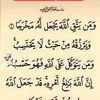 وَمَن يَتَّقِ اللَّهَ يَجْعَل لَّهُ مَخْرَجًا
وَيَرْزُقْهُ مِنْ حَيْثُ لَا يَحْتَسِبُ
وَمَن يَتَوَكَّلْ عَلَى اللَّهِ فَهُوَ حَسْبُهُ
إِنَّ اللَّهَ بَالِغُ أَمْرِهِ قَدْ جَعَلَ اللَّهُ